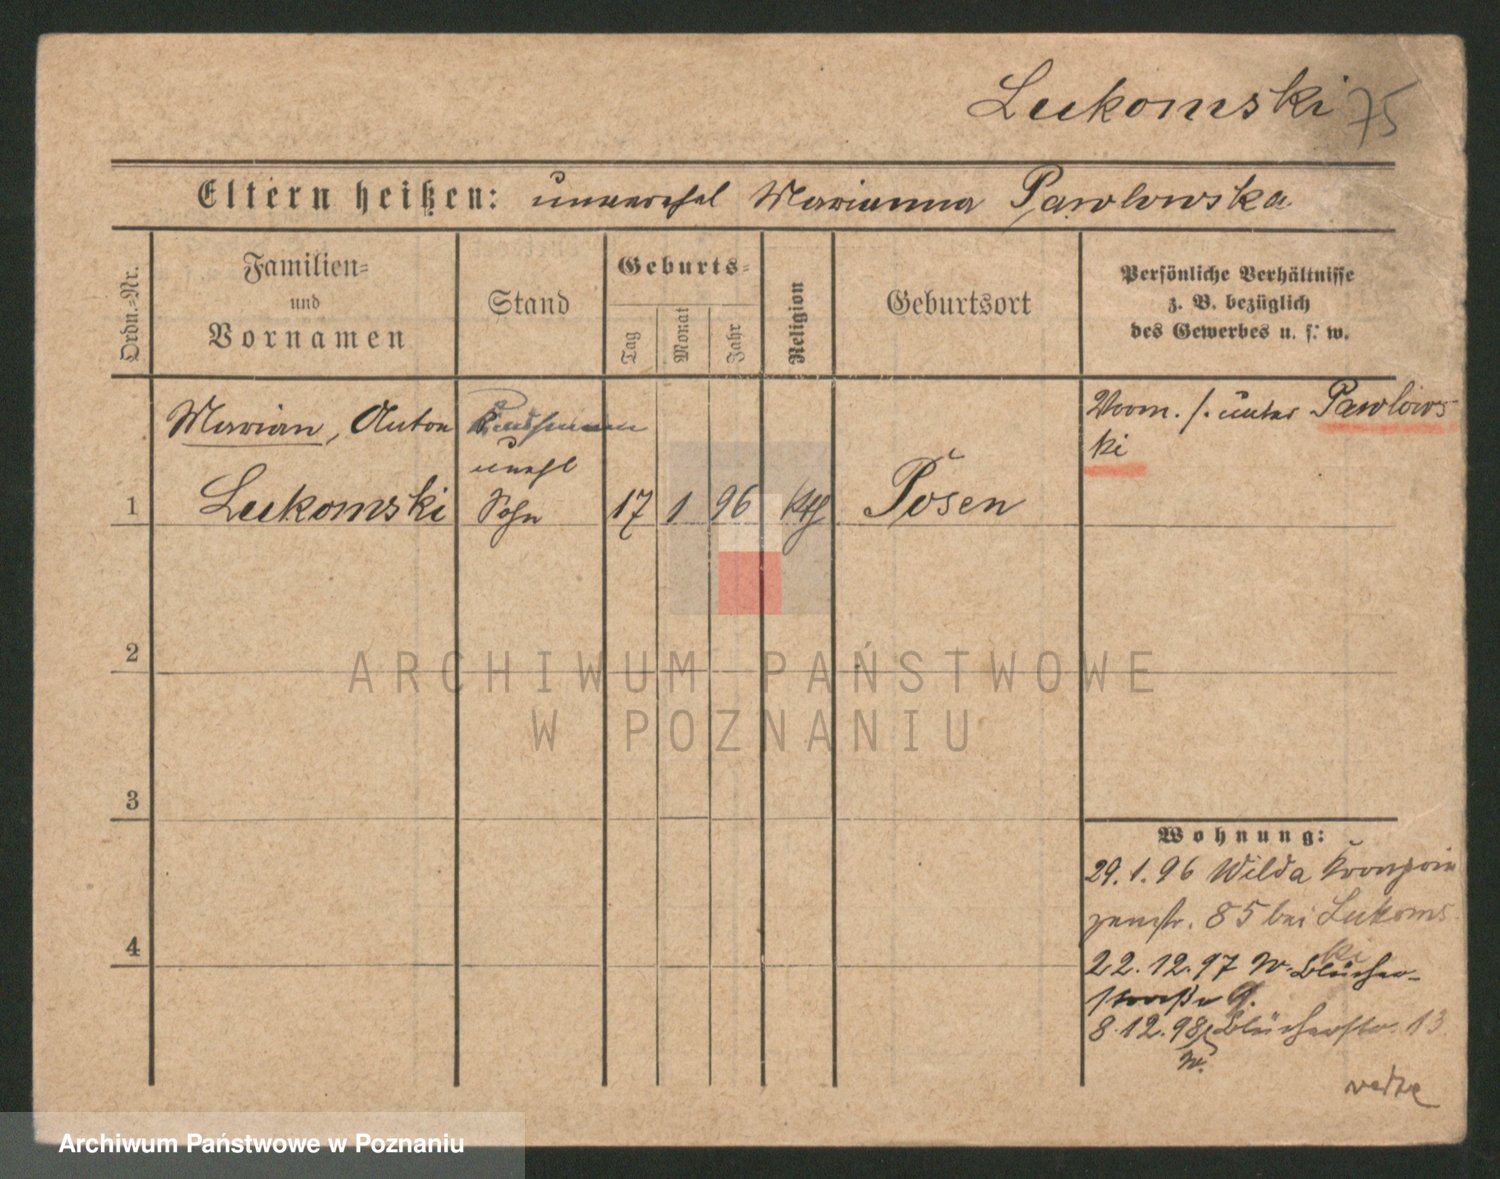 Lukomski 75
Eltern heißen: unverehel Marianna Pawlowska
Ordn.=Nr.
Familien=
und
Vornamen
Stand
Geburts=
Tag
Monat
Jahr
Religion
Geburtsort
Persönliche Verhältnisse
z. B. bezüglich
des Gewerbes u. s. w.
Marian, Anton
unehl
1 Lukomski Sohn 17 1 96 kth Posen
Vorm. /. unter Pawlows-
ki
2
3
4
ARCHIWUM PAŃSTWOWE
W POZNANIU
Wohnung:
29. 1. 96 Wilda Kronprin
zenstr. 85 bei Lukoms
ki
22. 12. 97 W. Blücher-
straße 9.
8. 12. 98 Blücherstr. 13
W.
Archiwum Państwowe w Poznaniu